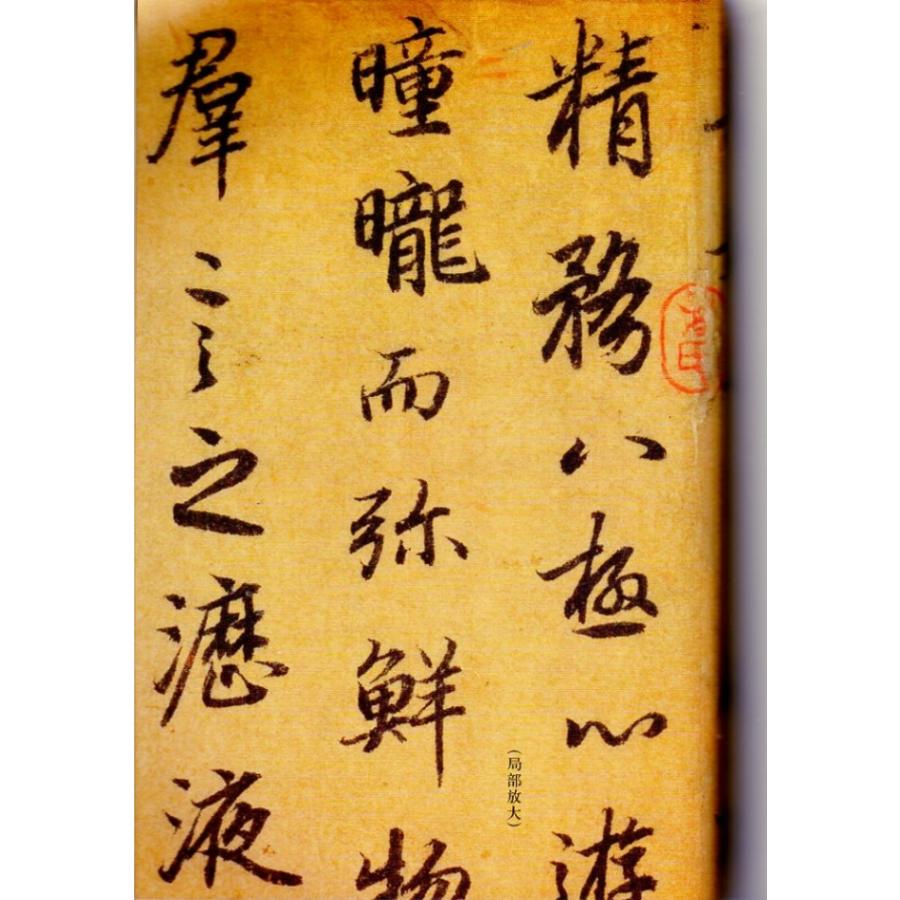 精務八極心遊
曈曨而弥鮮物
羣言之瀝液
(局部放大)